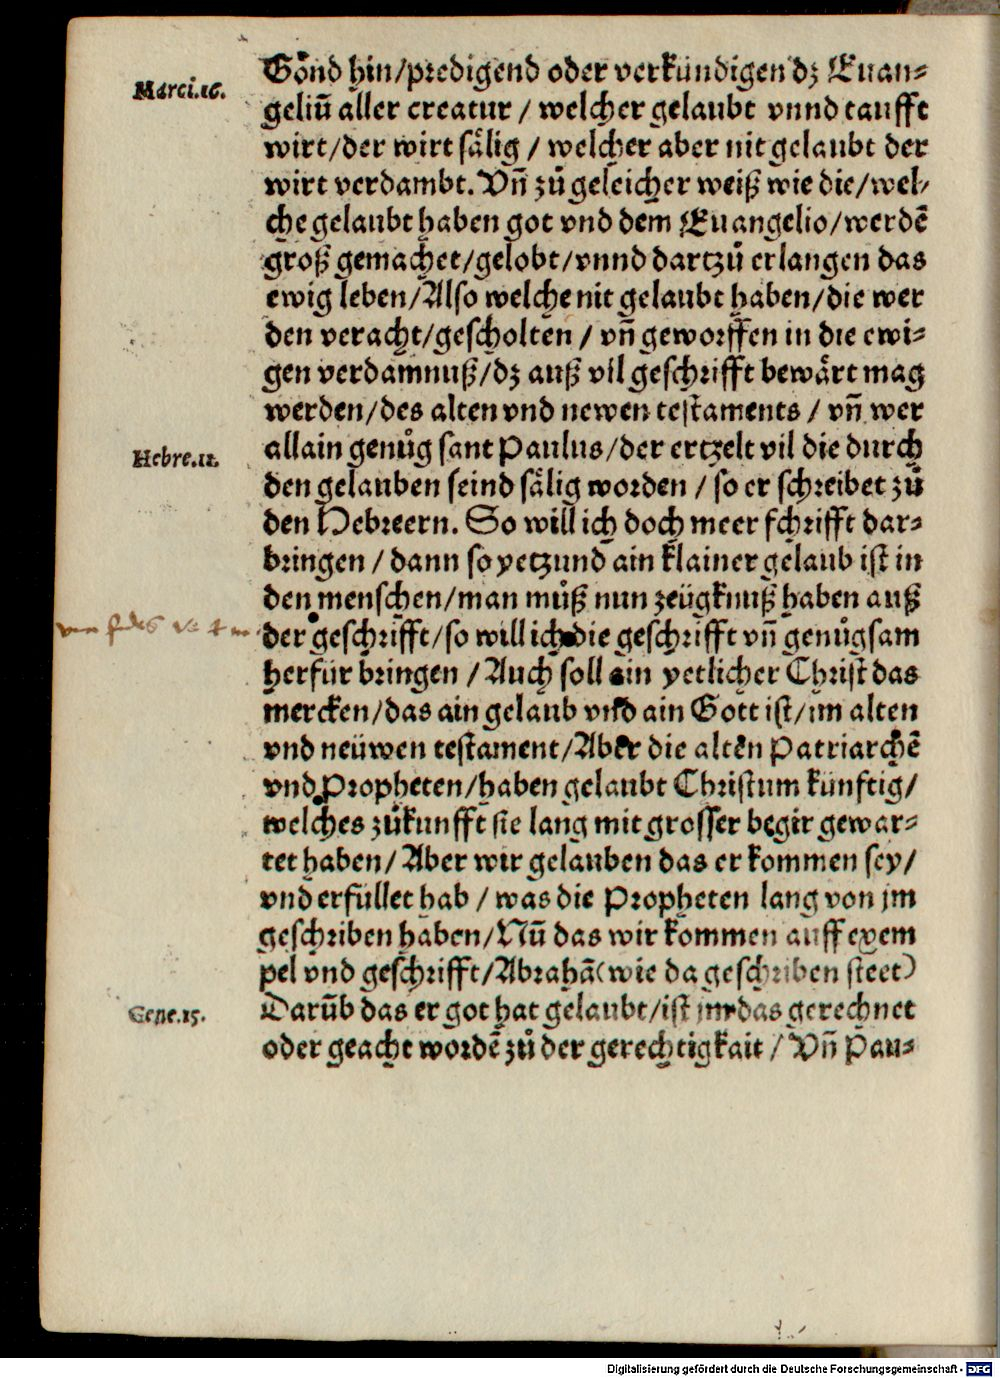 Marci.16.
Gond hin/predigend oder verkündigen dz Euan-
geliū aller creatur / welcher gelaubt vnnd taufft
wirt/der wirt sälig / welcher aber nit gelaubt der
wirt verdambt. Vn̄ zů geleicher weiß wie die/wel-
che gelaubt haben got vnd dem Euangelio/werdē
groß gemachet/gelobt/vnnd dartzů erlangen das
ewig leben/Also welche nit gelaubt haben/die wer
den veracht/gescholten / vn̄ geworffen in die ewi-
gen verdamnuß/dz auß vil geschrifft bewärt mag
werden/des alten vnd newen testaments / vn̄ wer
Hebre.11.
allain genůg sant Paulus/der ertzelt vil die durch
den gelauben seind sälig worden / so er schreibet zů
den Hebreern. So will ich doch meer schrifft dar-
bringen / dann so yetzund ain klainer gelaub ist in
den menschen/man můß nun zeügknuß haben auß
der geschrifft/so will ich die geschrifft vn̄ genůgsam
herfür bringen / Auch soll ain yetlicher Christ das
mercken/das ain gelaub vnd ain Gott ist/im alten
vnd neüwen testament/Aber die alten Patriarchē
vnd Propheten/haben gelaubt Christum künftig/
welches zůkunfft sie lang mit grosser begir gewar-
tet haben/Aber wir gelauben das er kommen sey/
vnd erfüllet hab / was die Propheten lang von jm
geschriben haben/Nū das wir kommen auff exem
pel vnd geschrifft/Abrahā(wie da geschriben steet)
Gene.15.
Darūb das er got hat gelaubt/ist jm das gerechnet
oder geacht wordē zů der gerechtigkait / Vn̄ Pau-
Digitalisierung gefördert durch die Deutsche Forschungsgemeinschaft - DFG